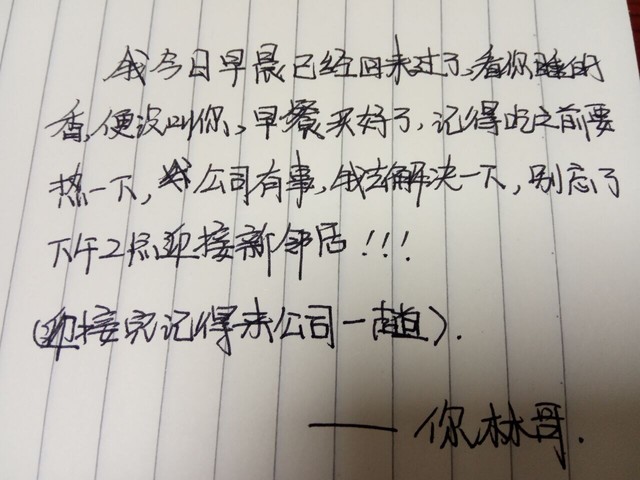 我今日早晨已经回来过了,看你睡的
香,便没叫你。早餐买好了,记得吃之前要
热一下,公司有事,我去解决一下,别忘了
下午2点迎接新邻居!!!
(迎接完记得来公司一趟).
——你林哥.